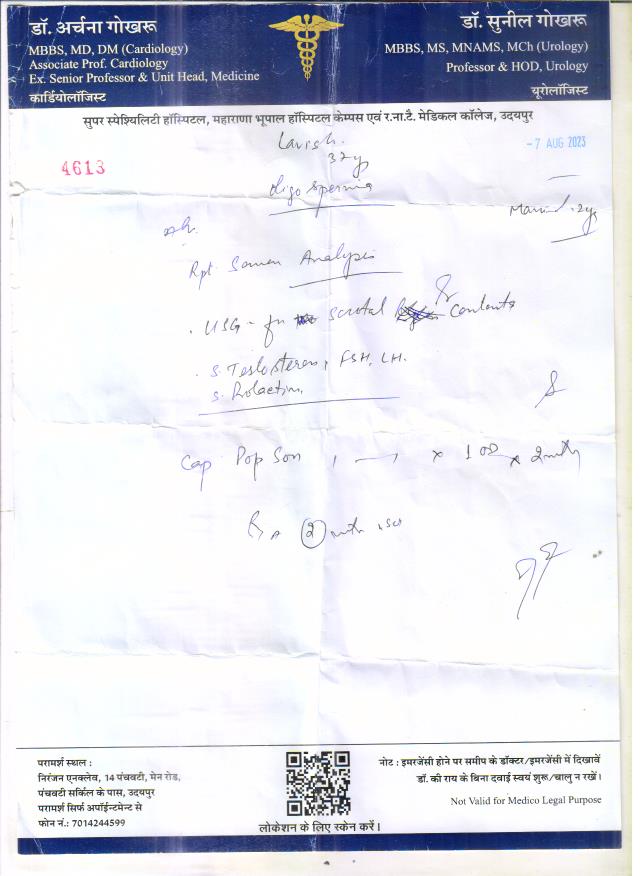 डॉ. अर्चना गोखरू
MBBS, MD, DM (Cardiology)
Associate Prof. Cardiology
Ex. Senior Professor & Unit Head, Medicine
कार्डियोलॉजिस्ट
डॉ. सुनील गोखरू
MBBS, MS, MNAMS, MCh (Urology)
Professor & HOD, Urology
यूरोलॉजिस्ट
सुपर स्पेश्यिलिटी हॉस्पिटल, महाराणा भूपाल हॉस्पिटल केम्पस एवं र.ना.टै. मेडिकल कॉलेज, उदयपुर
Lavish.
32y
-7 AUG 2023
4613
Oligospermia
2y
Rpt. Semen Analysis
. USG - for scrotal & Contents
. S. Testosteron, FSH, LH.
S. Prolactin.
Cap Pop Son 1 — x 1 OD x 2mth
2 mth
परामर्श स्थल :
निरंजन एनक्लेव, 14 पंचवटी, मेन रोड,
पंचवटी सर्किल के पास, उदयपुर
परामर्श सिर्फ अपॉईन्टमेन्ट से
फोन नं.: 7014244599
लोकेशन के लिए स्केन करें।
नोट : इमरजेंसी होने पर समीप के डॉक्टर/इमरजेंसी में दिखावें
डॉ. की राय के बिना दवाई स्वयं शुरू/चालु न रखें।
Not Valid for Medico Legal Purpose